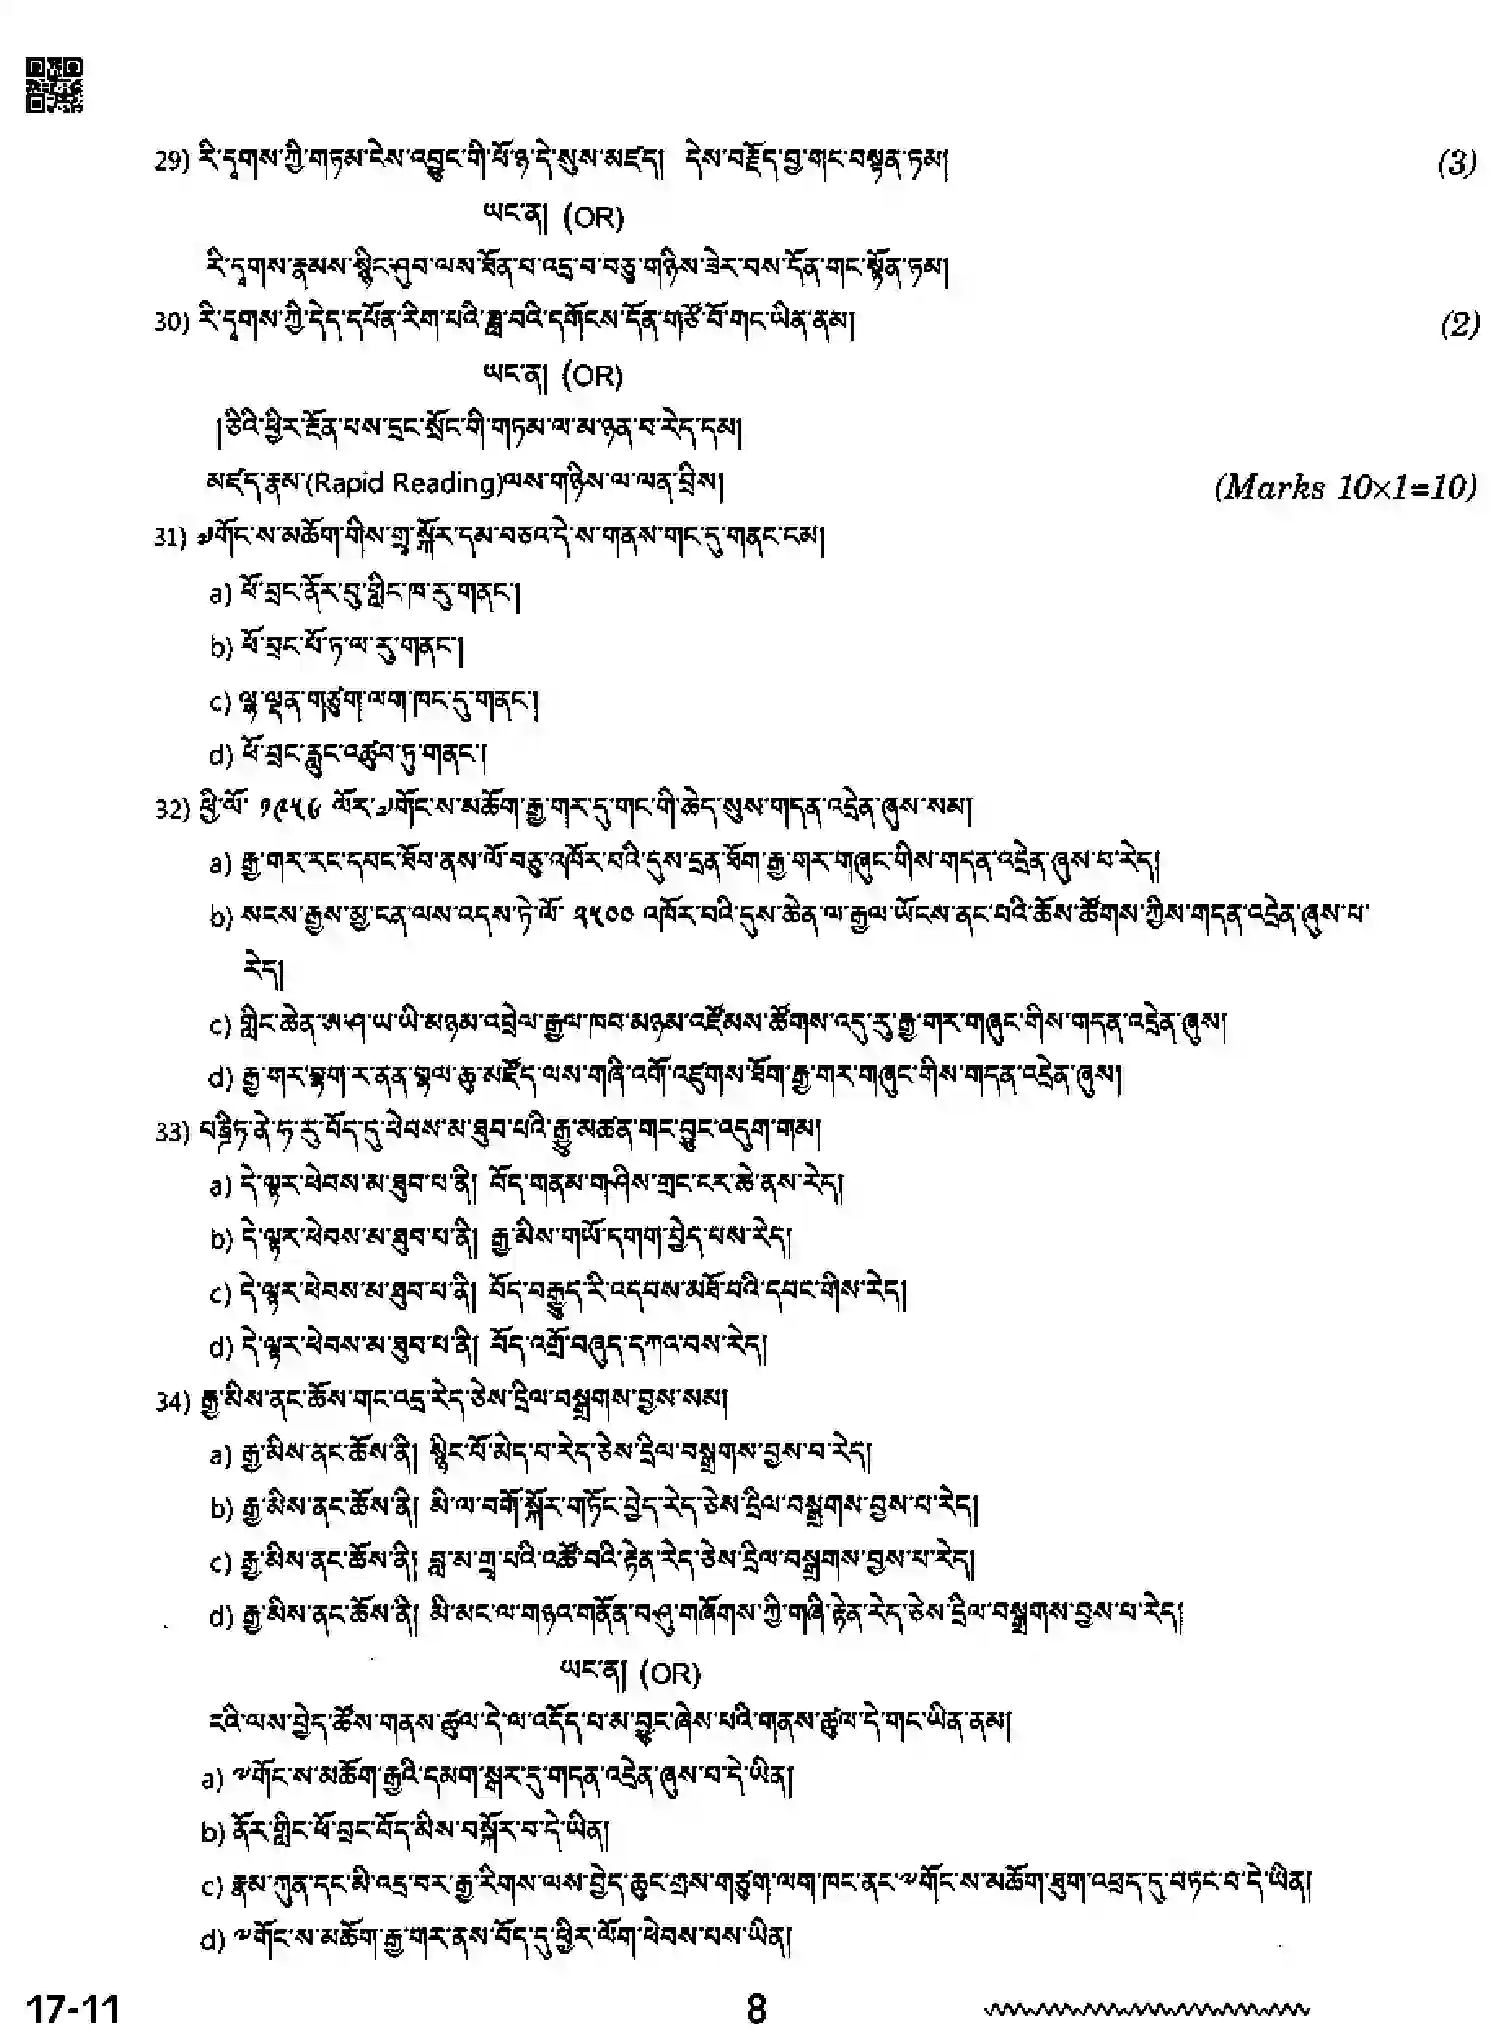 29) རི་དྭགས་ཀྱི་གཏམ་ངེས་འབྱུང་གི་ཕོ་ཉ་དེ་སུས་མཛད། དེས་བརྗོད་བྱ་གང་བསྟན་ཏམ། (3)
ཡང་ན། (OR)
རི་དྭགས་རྣམས་སྙིང་ཤུབ་ལས་ཐོན་པ་འདྲ་བ་བཅུ་གཉིས་ཟེར་བས་དོན་གང་སྟོན་ཏམ།
30) རི་དྭགས་ཀྱི་དེད་དཔོན་རིག་པའི་བླ་བའི་དགོངས་དོན་གཙོ་བོ་གང་ཡིན་ནམ། (2)
ཡང་ན། (OR)
།ཅིའི་ཕྱིར་རྔོན་པས་དྲང་སྲོང་གི་གཏམ་ལ་མ་ཉན་པ་རེད་དམ།
མཛད་རྣམ་(Rapid Reading)ལས་གཉིས་ལ་ལན་བྲིས། (Marks 10×1=10)
31) ༧གོང་ས་མཆོག་གིས་གྲྭ་སྐོར་དམ་བཅའ་དེ་ས་གནས་གང་དུ་གནང་ངམ།
a) ཕོ་བྲང་ནོར་བུ་གླིང་ཁ་རུ་གནང་།
b) ཕོ་བྲང་པོ་ཏ་ལ་རུ་གནང་།
c) ལྷ་ལྡན་གཙུག་ལག་ཁང་དུ་གནང་།
d) ཕོ་བྲང་རླུང་འཚུབ་ཏུ་གནང་།
32) ཕྱི་ལོ་ ༡༩༥༦ ལོར་༧གོང་ས་མཆོག་རྒྱ་གར་དུ་གང་གི་ཆེད་སུས་གདན་འདྲེན་ཞུས་སམ།
a) རྒྱ་གར་རང་དབང་ཐོབ་ནས་ལོ་བཅུ་འཁོར་བའི་དུས་དྲན་ཐོག་རྒྱ་གར་གཞུང་གིས་གདན་འདྲེན་ཞུས་པ་རེད།
b) སངས་རྒྱས་མྱ་ངན་ལས་འདས་ཏེ་ལོ་ ༢༥༠༠ འཁོར་བའི་དུས་ཆེན་ལ་རྒྱལ་ཡོངས་ནང་པའི་ཆོས་ཚོགས་ཀྱིས་གདན་འདྲེན་ཞུས་པ་
རེད།
c) གླིང་ཆེན་ཨ་ཤ་ཡ་ཡི་མཉམ་འབྲེལ་རྒྱལ་ཁབ་མཉམ་འཛོམས་ཚོགས་འདུ་རུ་རྒྱ་གར་གཞུང་གིས་གདན་འདྲེན་ཞུས།
d) རྒྱ་གར་བྷག་ར་ནན་བྷལ་ཆུ་མཛོད་ལས་གཞི་འགོ་འཛུགས་ཐོག་རྒྱ་གར་གཞུང་གིས་གདན་འདྲེན་ཞུས།
33) པཎྜི་ཏ་ནེ་ཧ་རུ་བོད་དུ་ཕེབས་མ་ཐུབ་པའི་རྒྱུ་མཚན་གང་བྱུང་འདུག་གམ།
a) དེ་ལྟར་ཕེབས་མ་ཐུབ་པ་ནི། བོད་གནམ་གཤིས་གྲང་ངར་ཆེ་ནས་རེད།
b) དེ་ལྟར་ཕེབས་མ་ཐུབ་པ་ནི། རྒྱ་མིས་གཡོ་དགག་བྱེད་པས་རེད།
c) དེ་ལྟར་ཕེབས་མ་ཐུབ་པ་ནི། བོད་བརྒྱུད་རི་འདབས་མཐོ་བའི་དབང་གིས་རེད།
d) དེ་ལྟར་ཕེབས་མ་ཐུབ་པ་ནི། བོད་འགྲོ་བཞུད་དཀའ་བས་རེད།
34) རྒྱ་མིས་ནང་ཆོས་གང་འདྲ་རེད་ཅེས་དྲིལ་བསྒྲགས་བྱས་སམ།
a) རྒྱ་མིས་ནང་ཆོས་ནི། སྙིང་པོ་མེད་པ་རེད་ཅེས་དྲིལ་བསྒྲགས་བྱས་པ་རེད།
b) རྒྱ་མིས་ནང་ཆོས་ནི། མི་ལ་བགོ་སྐོར་གཏོང་བྱེད་རེད་ཅེས་དྲིལ་བསྒྲགས་བྱས་པ་རེད།
c) རྒྱ་མིས་ནང་ཆོས་ནི། བླ་མ་གྲྭ་པའི་འཚོ་བའི་རྟེན་རེད་ཅེས་དྲིལ་བསྒྲགས་བྱས་པ་རེད།
d) རྒྱ་མིས་ནང་ཆོས་ནི། མི་མང་ལ་གཉའ་གནོན་བཤུ་གཞོགས་ཀྱི་གཞི་རྟེན་རེད་ཅེས་དྲིལ་བསྒྲགས་བྱས་པ་རེད།
ཡང་ན། (OR)
ངའི་ལས་བྱེད་ཚོས་གནས་ཚུལ་དེ་ལ་འདོད་པ་མ་བྱུང་ཞེས་པའི་གནས་ཚུལ་དེ་གང་ཡིན་ནམ།
a) ༧གོང་ས་མཆོག་རྒྱའི་དམག་སྒར་དུ་གདན་འདྲེན་ཞུས་པ་དེ་ཡིན།
b) ནོར་གླིང་ཕོ་བྲང་བོད་མིས་བསྐོར་བ་དེ་ཡིན།
c) རྣམ་ཀུན་དང་མི་འདྲ་བར་རྒྱ་རིགས་ལས་བྱེད་ཆུང་ཤས་གཙུག་ལག་ཁང་ནང་༧གོང་ས་མཆོག་ཐུག་འཕྲད་དུ་བཏང་བ་དེ་ཡིན།
d) ༧གོང་ས་མཆོག་རྒྱ་གར་ནས་བོད་དུ་ཕྱིར་ལོག་ཕེབས་པས་ཡིན།
17-11 8